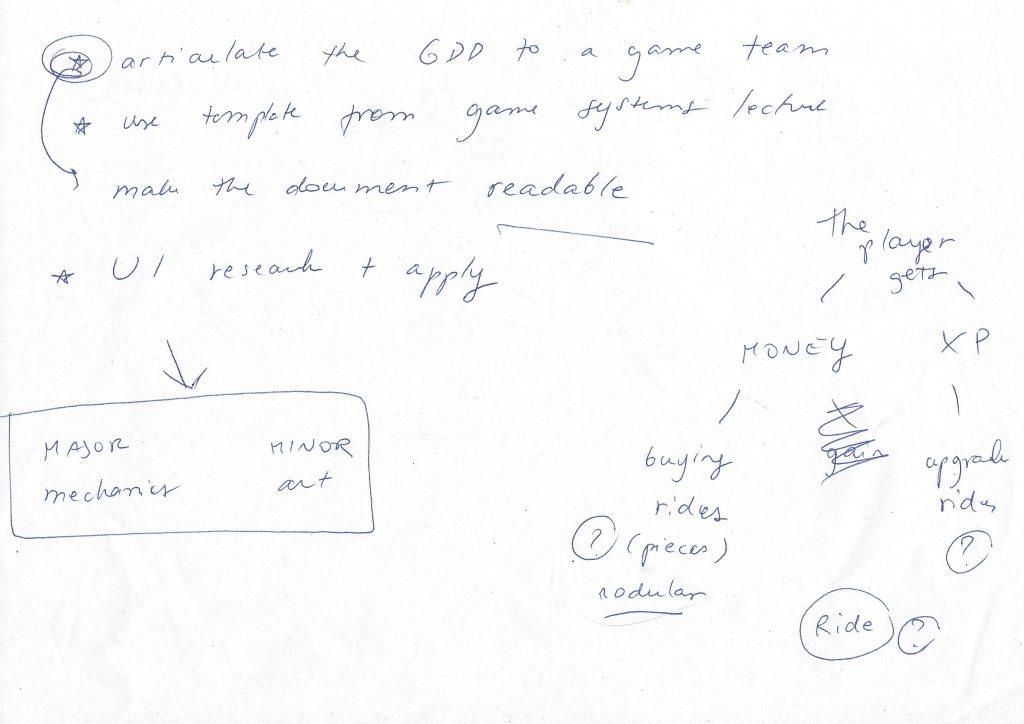 articulate the GDD to a game team
use template from game systems lecture
make the document readable
UI research + apply
MAJOR MINOR
mechanics art
the
player
gets
MONEY XP
buying
rides
? (pieces)
modular
gain
upgrade
rides
?
Ride ?